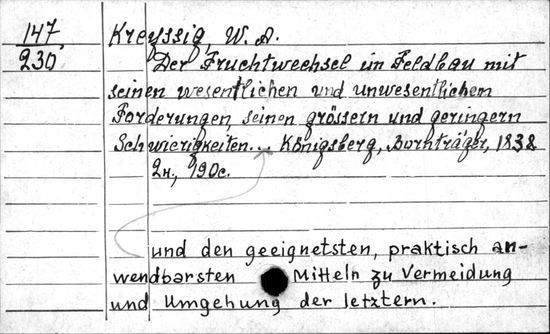 147 Kreyssig, W. A.
230 Der Fruchtwechsel im Feldbau mit
seinen wesentlichen und unwesentlichen
Forderungen, seinen grössern und geringern
Schwierigkeiten... Königsberg, Bornträger, 1838
2н., 190с.
und den geeignetsten, praktisch an-
wendbarsten Mitteln zu Vermeidung
und Umgehung der letztern.